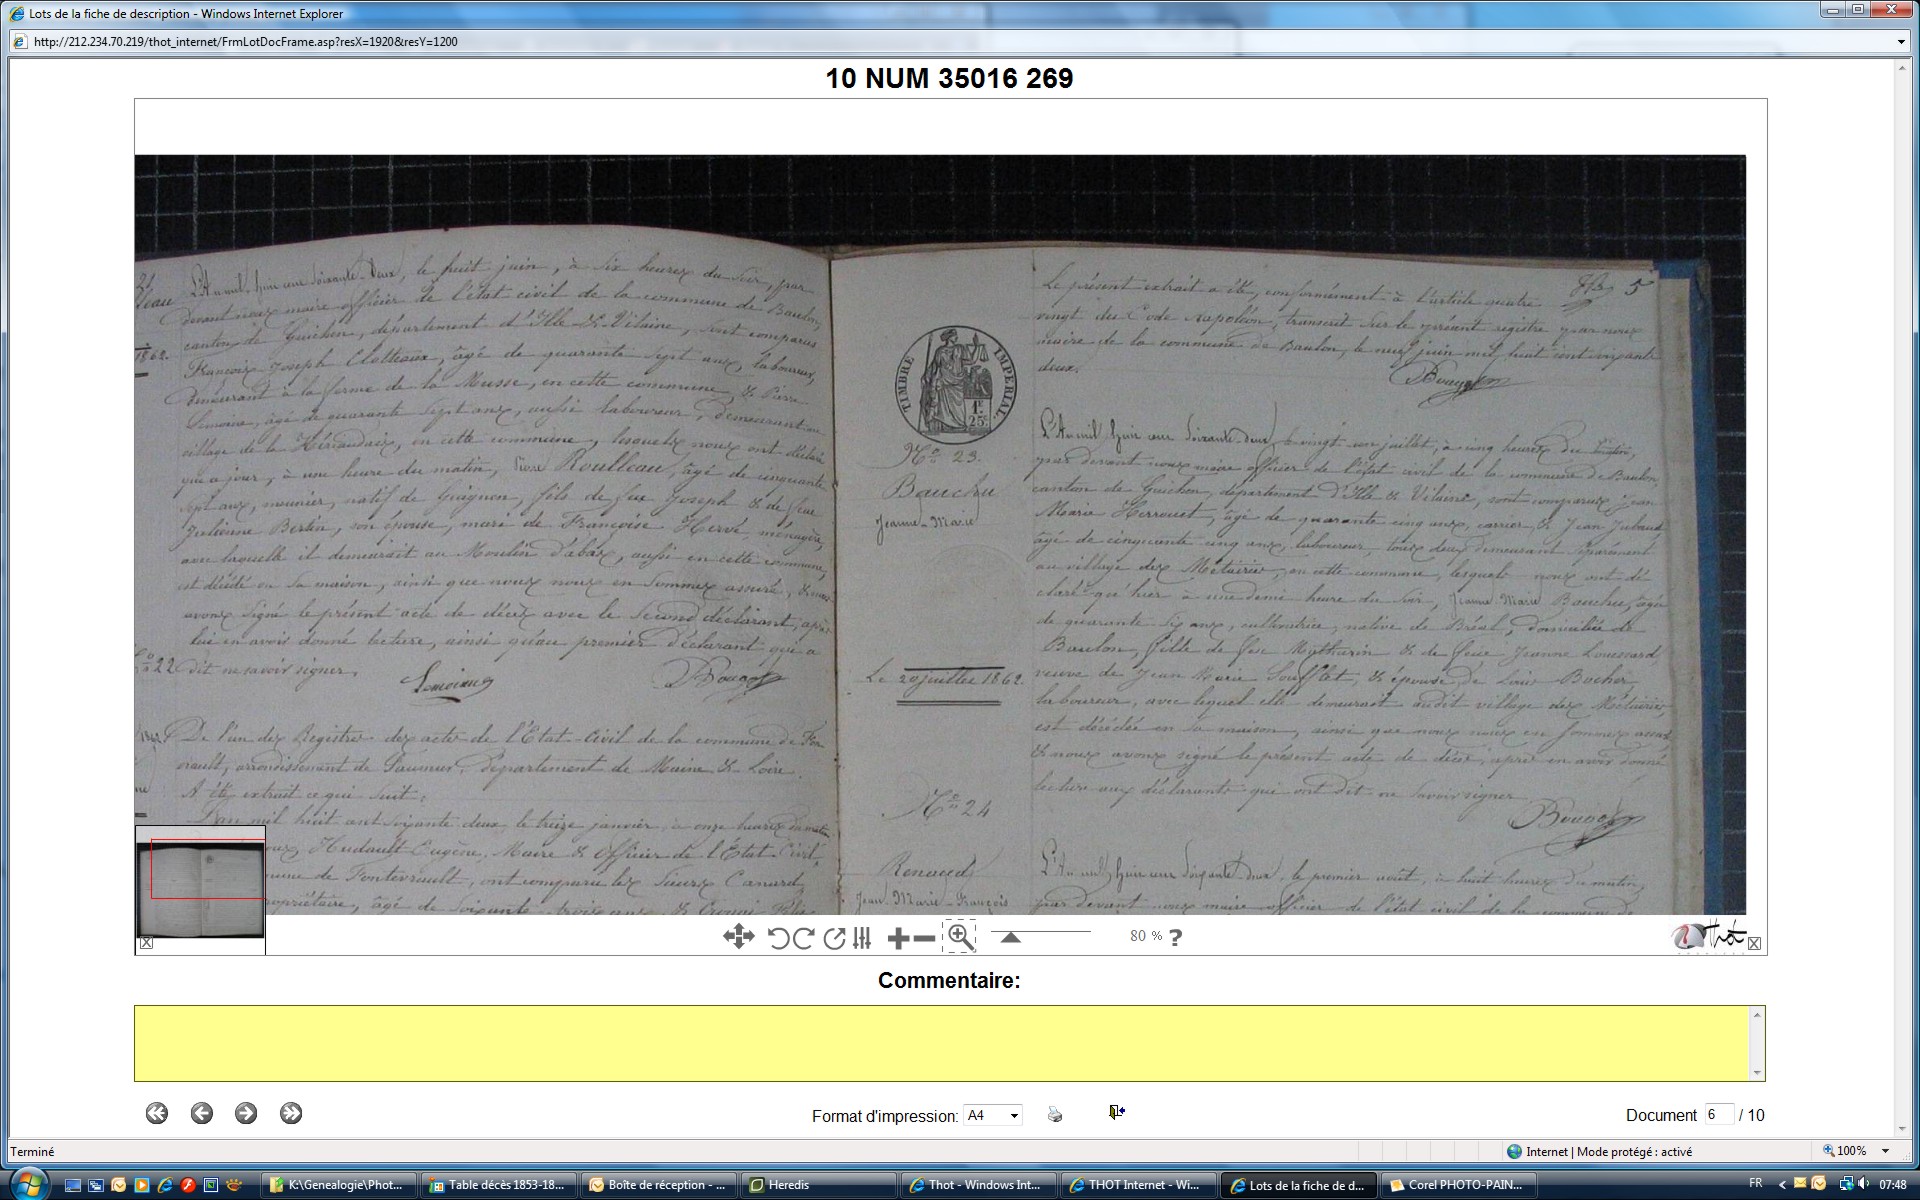 Lots de la fiche de description - Windows Internet Explorer
http://212.234.70.219/thot_internet/FrmLotDocFrame.asp?resX=1920&resY=1200
10 NUM 35016 269
L'An mil huit cent soixante-Deux, le huit juin, à six heures du soir, par
devant nous maire officier de l'état civil de la commune de Baulon,
canton de Guichen, département d'Ille & Vilaine, sont comparus
François Joseph Clotteaux, âgé de quarante sept ans, laboureur,
demeurant à la ferme de la Musse, en cette commune, & Pierre
Lemoine, âgé de quarante sept ans, aussi laboureur, demeurant au
village de la, en cette commune, lesquels nous ont déclaré
que ce jour, à une heure du matin, Pierre Roulleau, âgé de cinquante
sept ans, meunier, natif de Guignen, fils de feu Joseph & de feue
Julienne Bertin, son épouse, marié de Françoise Hervé, ménagère,
avec laquelle il demeurait au Moulin d'abas, aussi en cette commune,
est décédé en sa maison, ainsi que nous nous en sommes assuré, & nous
avons signé le présent acte de décès avec le second déclarant, après
lui en avoir donné lecture, ainsi qu'au premier déclarant qui a
dit ne savoir signer.
Lemoine
Bougot
1862.
No 22
De l'un des Registres des actes de l'Etat-Civil de la commune de Fon
vrault, arrondissement de Saumur, département de Maine & Loire.
A été extrait ce qui suit:
L'an mil huit cent soixante deux, le treize janvier, à onze heures du matin
nous, Hudault Eugène, Maire & Officier de l'Etat Civil
mune de Fontevrault, ont comparu les Sieurs Canard
opriétaire, âgé de soixante-trois ans &
TIMBRE IMPERIAL
1f
25c
No 23.
Bauchu
Jeanne-Marie
Le 20 juillet 1862.
No 24
Renaud
Jean Marie-François
5
Le présent extrait a été, conformément à l'article quatre
vingt du Code napoléon, transcrit sur le présent registre par nous
maire de la commune de Baulon, le neuf juin mil huit cent soixante
deux.
Bougot
L'An mil huit cent soixante-deux, le vingt un juillet, à cinq heures du
par devant nous maire officier de l'état civil de la commune de Baulon
canton de Guichen, département d'Ille & Vilaine, sont comparus Jean
Marie Herrouet, âgé de quarante cinq ans, carrier, & Jean
âgé de cinquante cinq ans, laboureur, tous deux demeurant séparément
au village des Métairies, en cette commune, lesquels nous ont dé
claré qu'hier à une demi heure du soir, Jeanne-Marie Bauchu, âgée
de quarante six ans, cultivatrice, native de Bréal, domiciliée de
Baulon, fille de feu Mathurin & de feue Jeanne Louessard,
veuve de Jean Marie Soufflet, & épouse de Louis Bocher
laboureur, avec lequel elle demeurait audit village des Métairies,
est décédée en sa maison, ainsi que nous nous en sommes assuré
& nous avons signé le présent acte de décès, après en avoir donné
lecture aux déclarants qui ont dit ne savoir signer
Bougot
L'An mil huit cent soixante deux, le premier août, à huit heures du matin,
par devant nous maire officier de l'état civil de la commune de
80 %
?
Thot
Commentaire:
Format d'impression: A4
Document 6 / 10
Terminé
Internet | Mode protégé : activé
100%
K:\Genealogie\Phot...
Table décès 1853-18...
Boîte de réception - ...
Heredis
Thot - Windows Int...
THOT Internet - Wi...
Lots de la fiche de d...
Corel PHOTO-PAIN...
FR
07:48